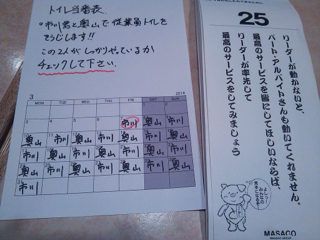 トイレ当番表
・市川君と奥山で従業員トイレを
そうじします!!
この2人がしっかりやっているか
チェックして下さい。
3
MON TUE WED THU FRI SAT SUN
市川 奥山 市川
奥山 市川 奥山 市川 奥山 市川 奥山
市川 奥山 市川 奥山 市川 奥山 市川
奥山 市川 奥山 市川 奥山 市川 奥山
市川
25
リーダーが動かないと、
パート・アルバイトさんも動いてくれません。
最高のサービスを皆にしてほしいならば、
リーダーが率先して
最高のサービスをしてみましょう
MASACO